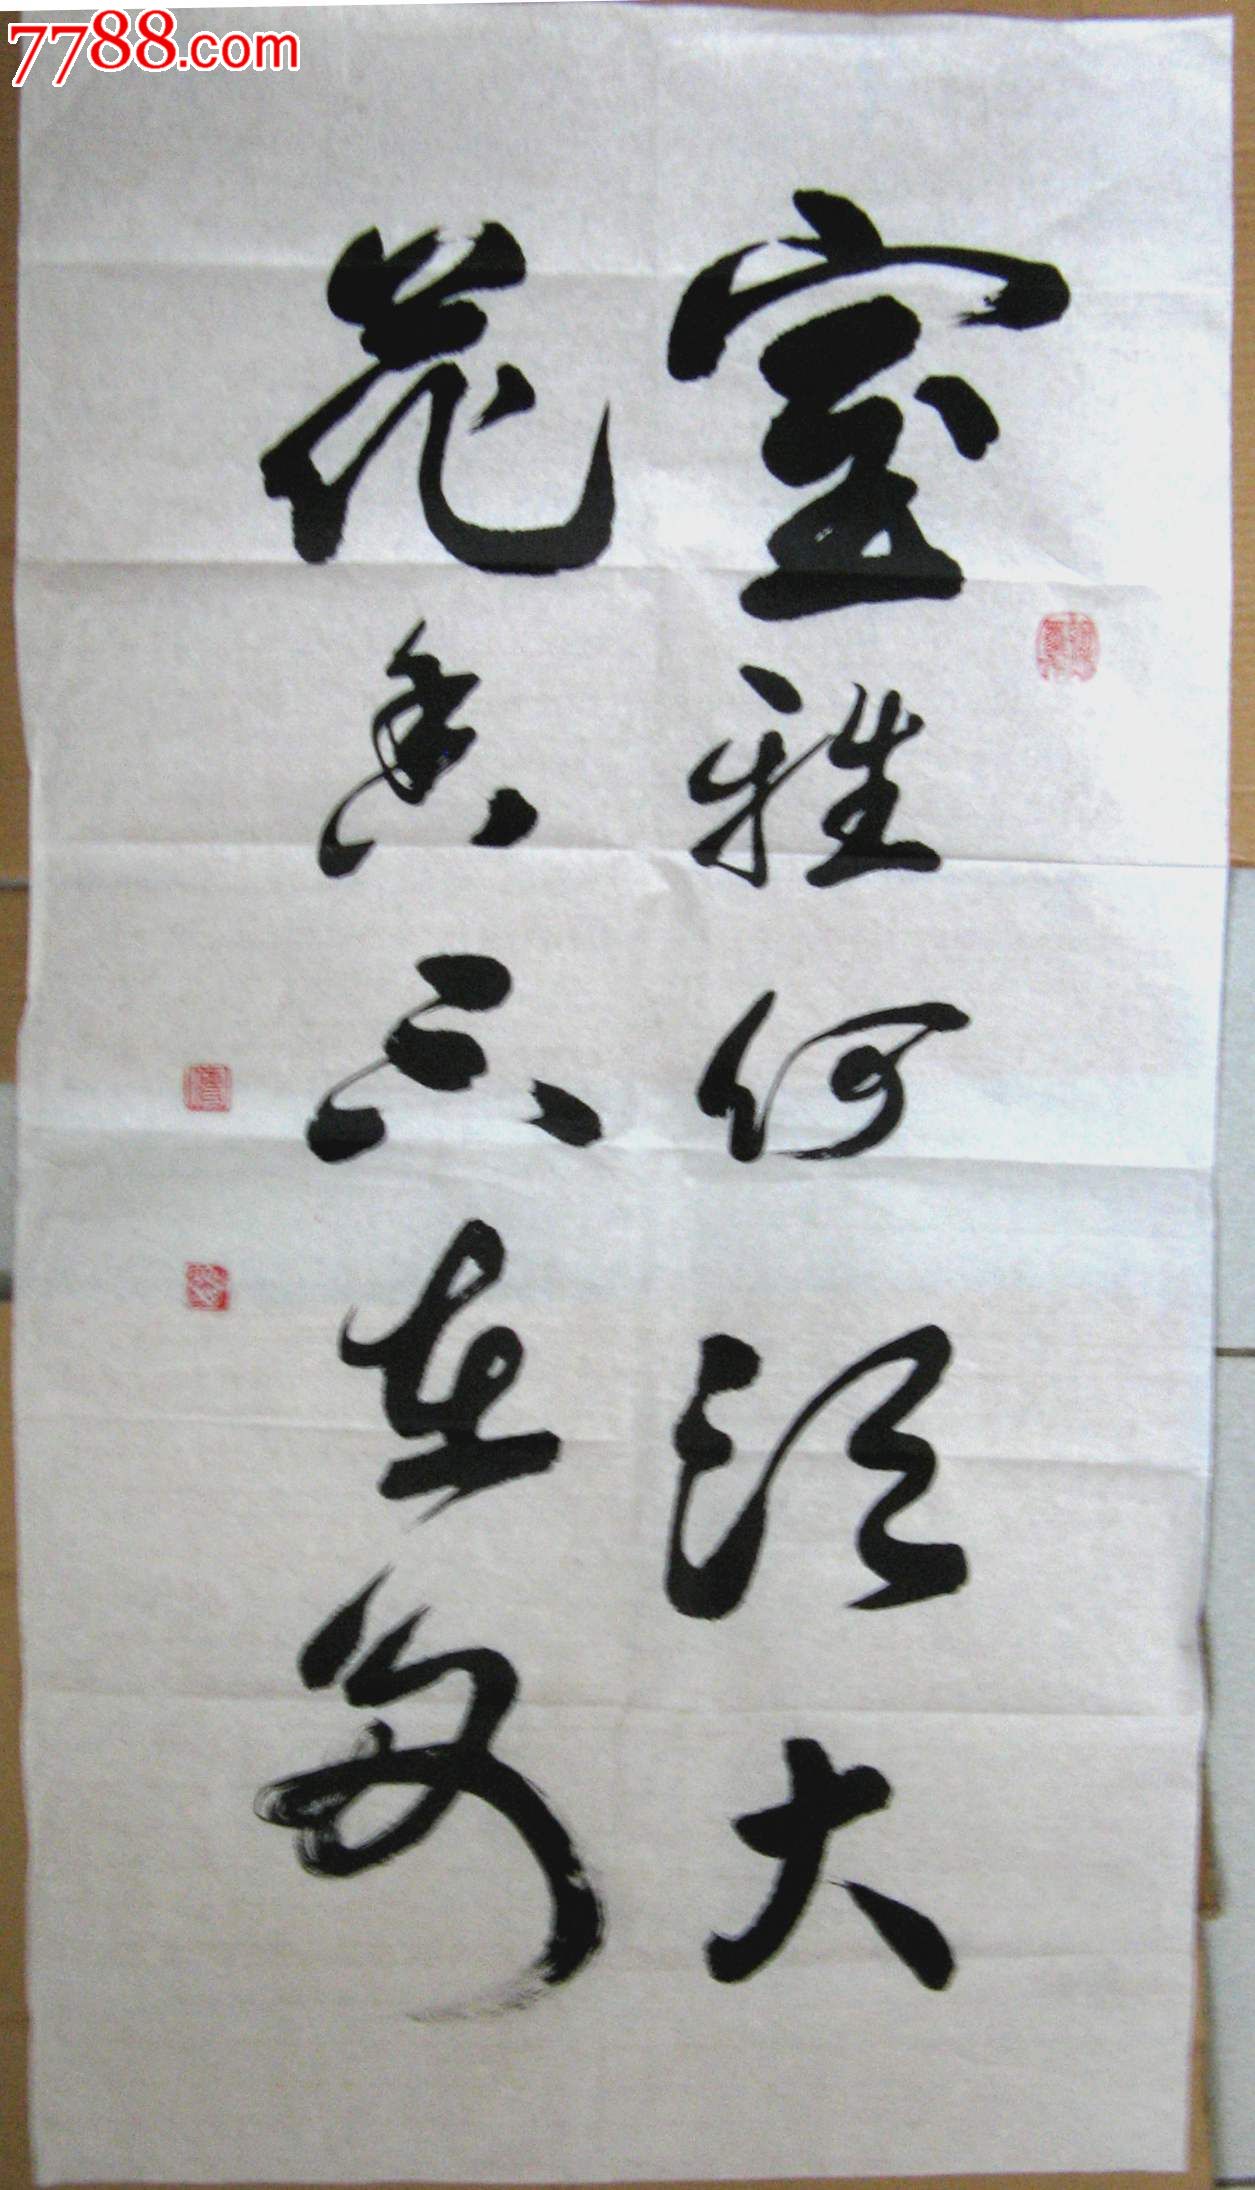 7788.com
室雅何须大
花香不在多